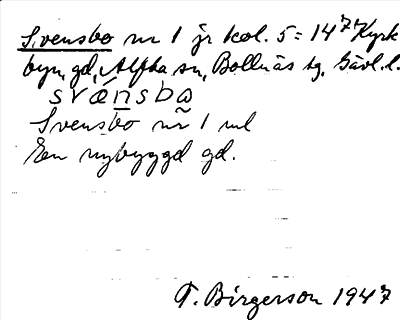 Svensbo nr 1 jr kol. 5 = 14 Kyrk
byn, gd, Alfta sn, Bollnäs tg, Gävl. l.
svänsba
Svensbo nr 1 ml
En nybyggd gd.
T. Birgerson 1947